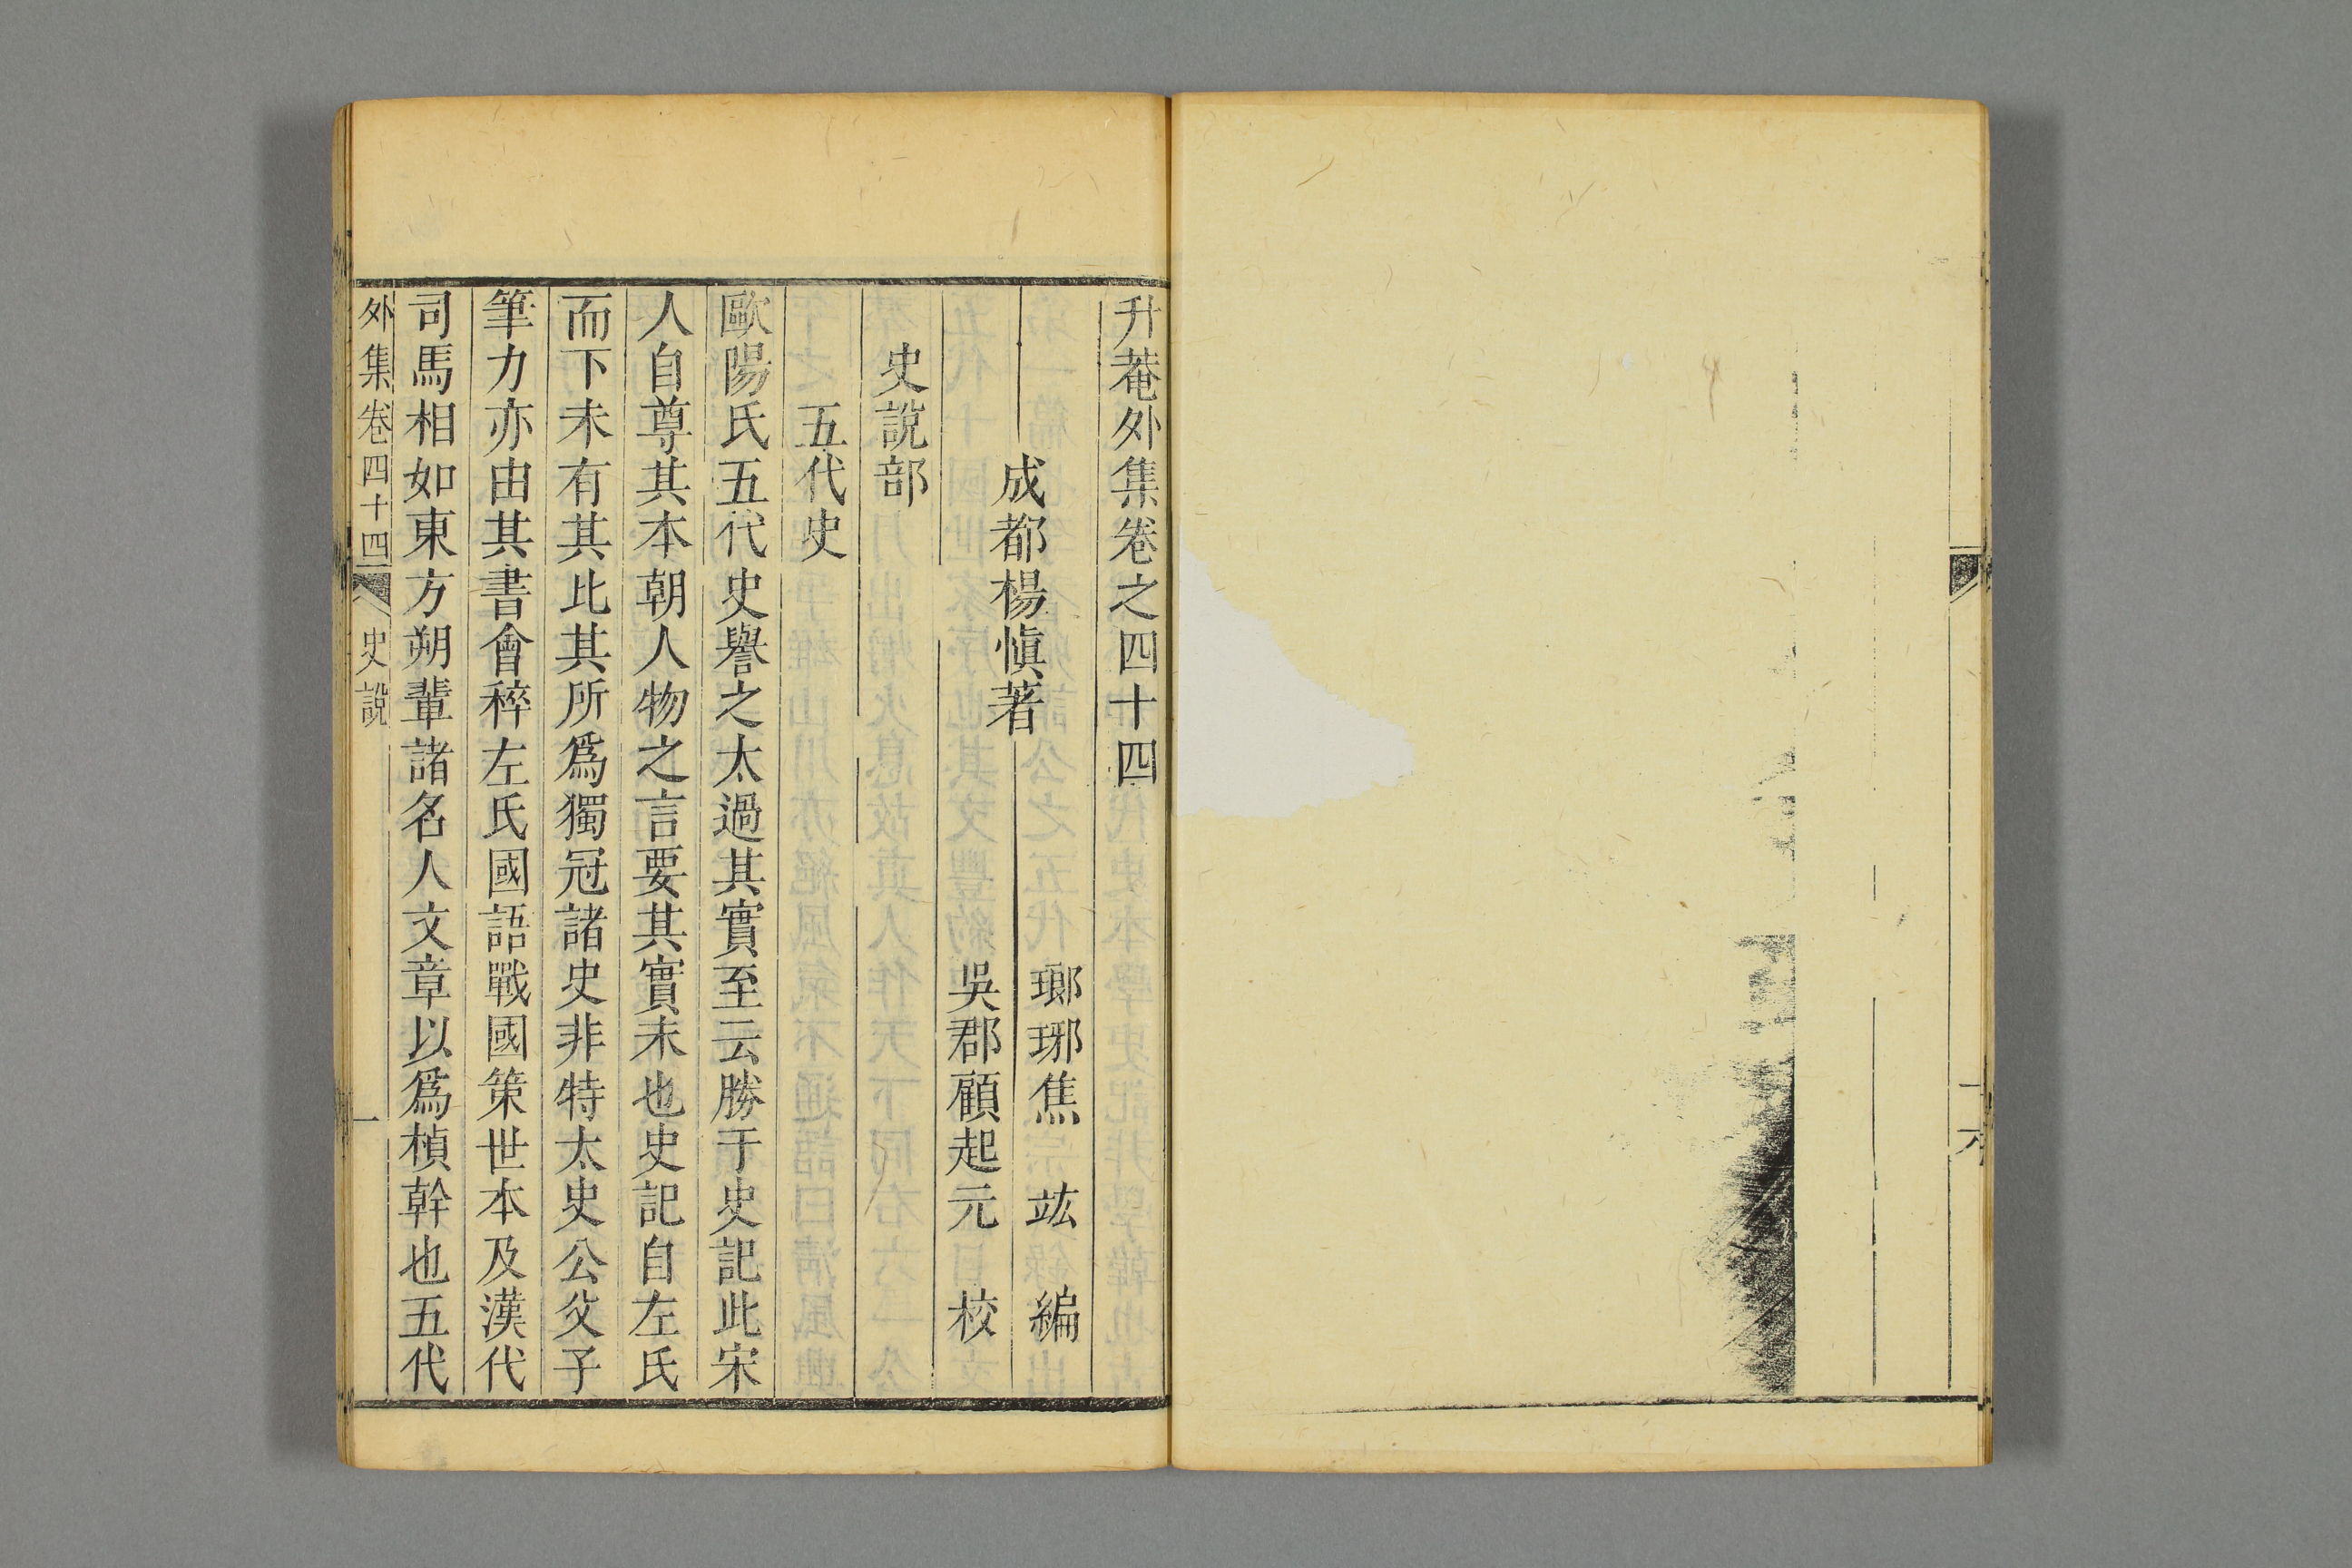 升菴外集卷之四十四
成都楊慎著
瑯琊焦 竑 編
吳郡顧起元 校
史說部
五代史
歐陽氏五代史譽之太過其實至云勝于史記此宋
人自尊其本朝人物之言要其實未也史記自左氏
而下未有其比其所爲獨冠諸史非特太史公父子
筆力亦由其書會稡左氏國語戰國策世本及漢代
司馬相如東方朔輩諸名人文章以爲楨幹也五代
外集卷四十四 史說 一